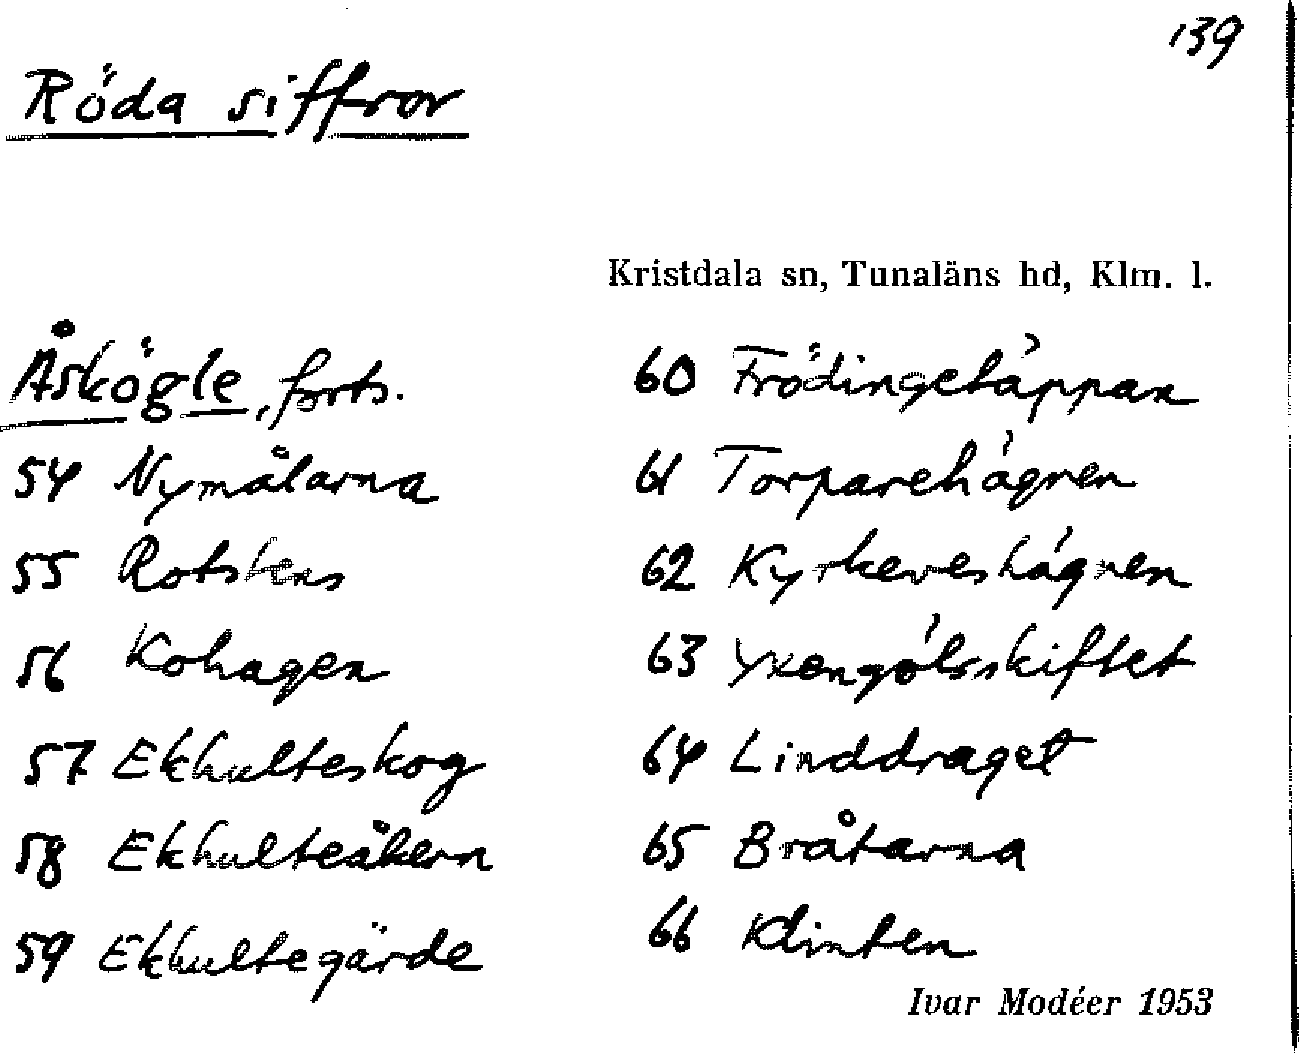 139
Röda siffror
Kristdala sn, Tunaläns hd, Klm. l.
Åskögle, forts.
54 Nymålarna
55 Rotstens
56 Kohagen
57 Ekhulteskog
58 Ekhulteåkern
59 Ekhultegärde
60 Frödingetäppan
61 Torparehägnen
62 Kyrkeveshägnen
63 Yxengölsskiftet
64 Linddraget
65 Bråtarna
66 Klinten
Ivar Modéer 1953